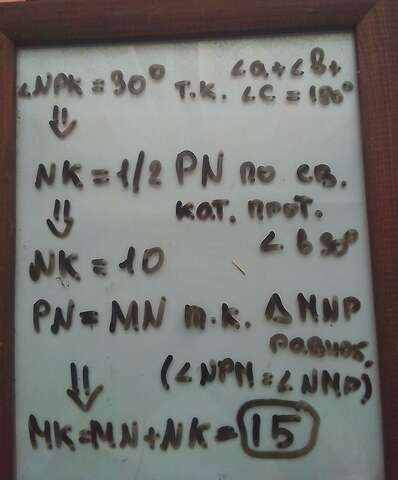 ∠NPK = 30° т.к. ∠a+∠B+
∠C = 180°
⇓
NK = 1/2 PN по св.
кат. прот.
∠ в 30°
⇓
NK = 10
PN = MN т.к. Δ MNP
равноб.
(∠NPM = ∠NMP)
⇓
MK = MN + NK = 15